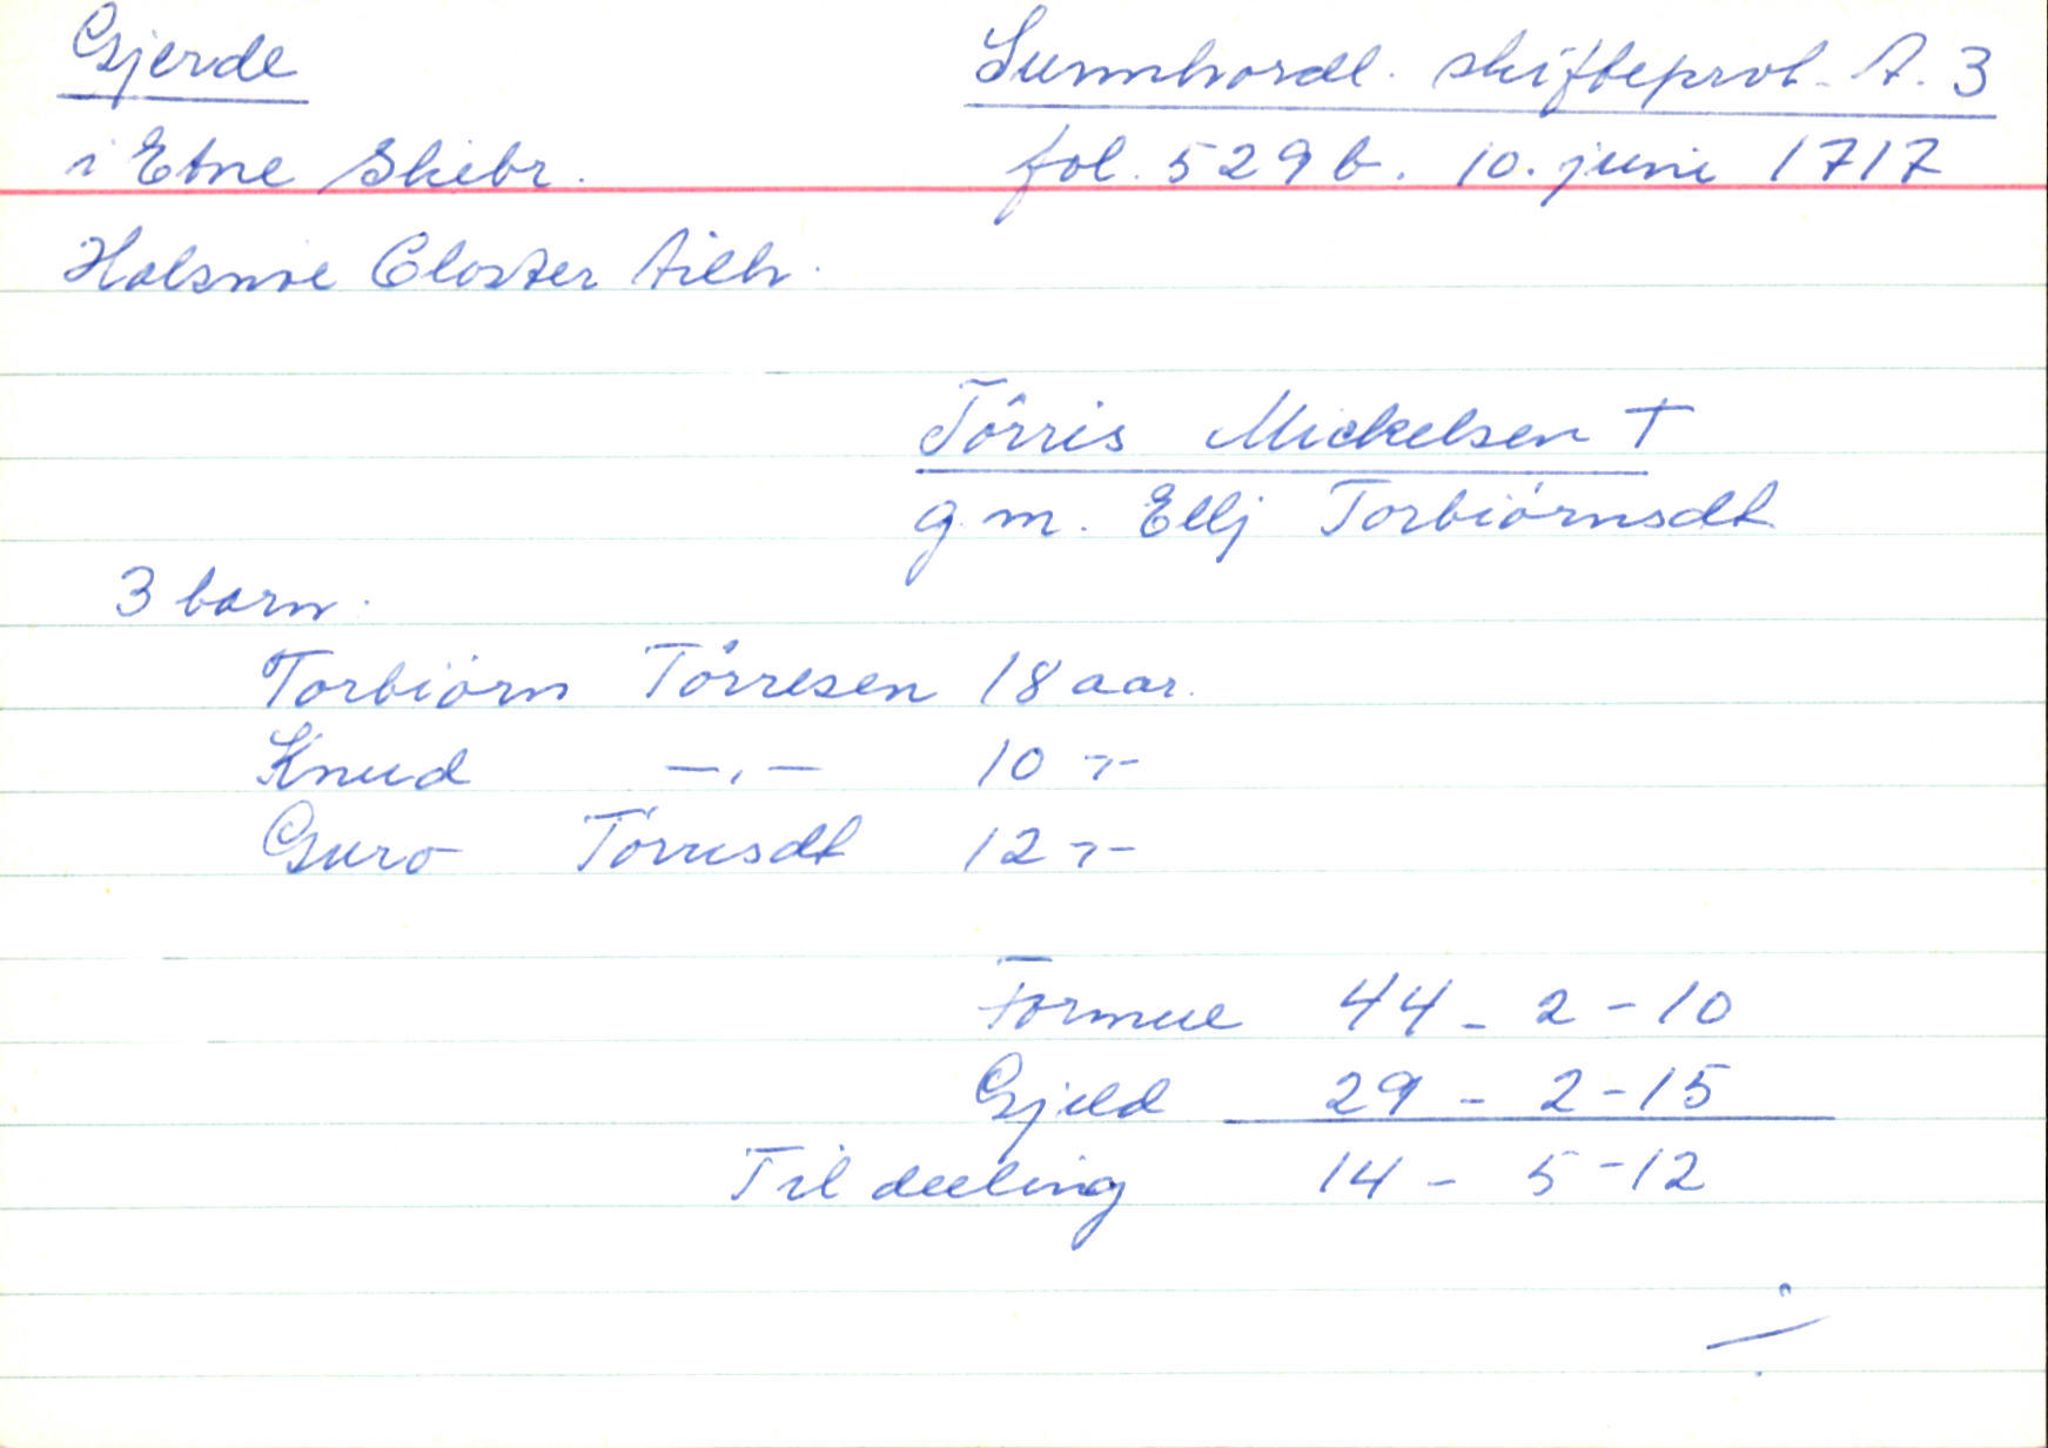 Gjerde
Sunnhordl. skifteprot. A. 3
i Etne Skibr.
fol. 529 b. 10. juni 1717
Halsnøe Closter tilh.
Törris Mickelsen †
g. m. Ellj Torbiörnsdt
3 barn.
Torbiörn Törresen 18 aar.
Knud —,— 10 -,-
Guro Törresdt 12 -,-
Formue 44 - 2 - 10
Gjeld 29 - 2 - 15
Til deeling 14 - 5 - 12